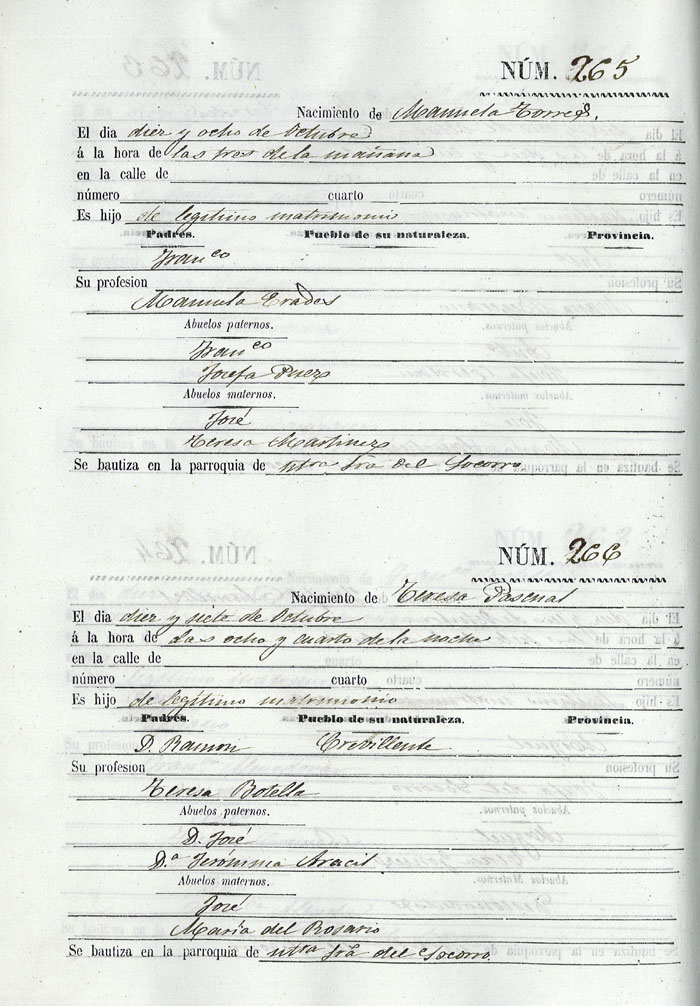 NÚM. 265
Nacimiento de Manuela Torres.
El dia diez y ocho de Octubre
á la hora de las tres de la mañana
en la calle de
número cuarto
Es hijo de legítimo matrimonio
Padres. Pueblo de su naturaleza. Provincia.
Franco
Su profesion
Manuela Erades
Abuelos paternos.
Franco
Josefa Perez
Abuelos maternos.
José
Teresa Martinez
Se bautiza en la parroquia de Ntra Sra del Socorro
NÚM. 266
Nacimiento de Teresa Pascual
El dia diez y siete de Octubre
á la hora de las ocho y cuarto de la noche
en la calle de
número cuarto
Es hijo de legítimo matrimonio
Padres. Pueblo de su naturaleza. Provincia.
D. Ramon Crevillente
Su profesion
Teresa Botella
Abuelos paternos.
D. José
D.a Jerónima Aracil
Abuelos maternos.
José
María del Rosario
Se bautiza en la parroquia de Ntra Sra del Socorro